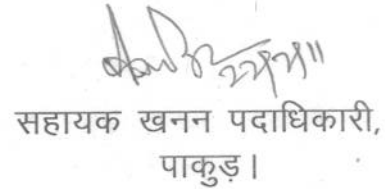 सहायक खनन पदाधिकारी,
पाकुड़।